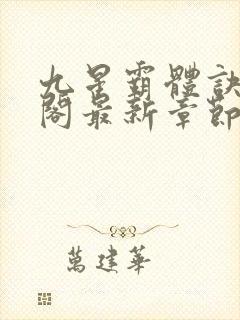 九星霸體訣
閣最新章節
萬建華